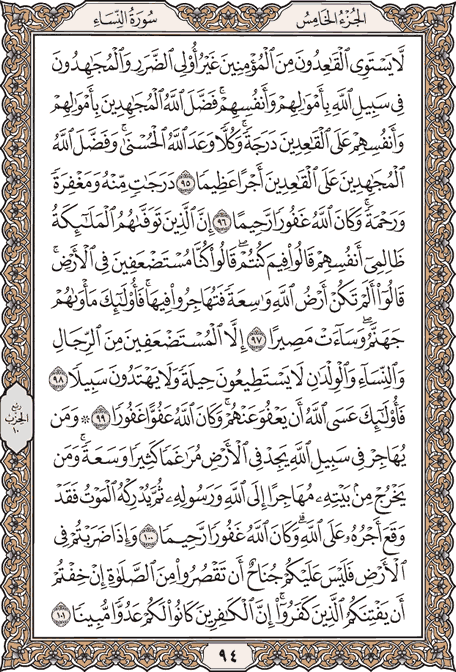 الجُزْءُ الخَامِسُ
سُورَةُ النِّسَاءِ
لَّا يَسْتَوِى ٱلْقَـٰعِدُونَ مِنَ ٱلْمُؤْمِنِينَ غَيْرُ أُو۟لِى ٱلضَّرَرِ وَٱلْمُجَـٰهِدُونَ
فِى سَبِيلِ ٱللَّهِ بِأَمْوَٰلِهِمْ وَأَنفُسِهِمْ ۚ فَضَّلَ ٱللَّهُ ٱلْمُجَـٰهِدِينَ بِأَمْوَٰلِهِمْ
وَأَنفُسِهِمْ عَلَى ٱلْقَـٰعِدِينَ دَرَجَةً ۚ وَكُلًّا وَعَدَ ٱللَّهُ ٱلْحُسْنَىٰ ۚ وَفَضَّلَ ٱللَّهُ
ٱلْمُجَـٰهِدِينَ عَلَى ٱلْقَـٰعِدِينَ أَجْرًا عَظِيمًا ٩٥ دَرَجَـٰتٍ مِّنْهُ وَمَغْفِرَةً
وَرَحْمَةً ۚ وَكَانَ ٱللَّهُ غَفُورًا رَّحِيمًا ٩٦ إِنَّ ٱلَّذِينَ تَوَفَّىٰهُمُ ٱلْمَلَـٰٓئِكَةُ
ظَالِمِىٓ أَنفُسِهِمْ قَالُوا۟ فِيمَ كُنتُمْ ۖ قَالُوا۟ كُنَّا مُسْتَضْعَفِينَ فِى ٱلْأَرْضِ ۚ
قَالُوٓا۟ أَلَمْ تَكُنْ أَرْضُ ٱللَّهِ وَٰسِعَةً فَتُهَاجِرُوا۟ فِيهَا ۚ فَأُو۟لَـٰٓئِكَ مَأْوَىٰهُمْ
جَهَنَّمُ ۖ وَسَآءَتْ مَصِيرًا ٩٧ إِلَّا ٱلْمُسْتَضْعَفِينَ مِنَ ٱلرِّجَالِ
وَٱلنِّسَآءِ وَٱلْوِلْدَٰنِ لَا يَسْتَطِيعُونَ حِيلَةً وَلَا يَهْتَدُونَ سَبِيلًا ٩٨
فَأُو۟لَـٰٓئِكَ عَسَى ٱللَّهُ أَن يَعْفُوَ عَنْهُمْ ۚ وَكَانَ ٱللَّهُ عَفُوًّا غَفُورًا ٩٩ ۞ وَمَن
يُهَاجِرْ فِى سَبِيلِ ٱللَّهِ يَجِدْ فِى ٱلْأَرْضِ مُرَٰغَمًا كَثِيرًا وَسَعَةً ۚ وَمَن
يَخْرُجْ مِنۢ بَيْتِهِۦ مُهَاجِرًا إِلَى ٱللَّهِ وَرَسُولِهِۦ ثُمَّ يُدْرِكْهُ ٱلْمَوْتُ فَقَدْ
وَقَعَ أَجْرُهُۥ عَلَى ٱللَّهِ ۗ وَكَانَ ٱللَّهُ غَفُورًا رَّحِيمًا ١٠٠ وَإِذَا ضَرَبْتُمْ فِى
ٱلْأَرْضِ فَلَيْسَ عَلَيْكُمْ جُنَاحٌ أَن تَقْصُرُوا۟ مِنَ ٱلصَّلَوٰةِ إِنْ خِفْتُمْ
أَن يَفْتِنَكُمُ ٱلَّذِينَ كَفَرُوٓا۟ ۚ إِنَّ ٱلْكَـٰفِرِينَ كَانُوا۟ لَكُمْ عَدُوًّا مُّبِينًا ١٠١
ربع
الحزب
١٠
٩٤